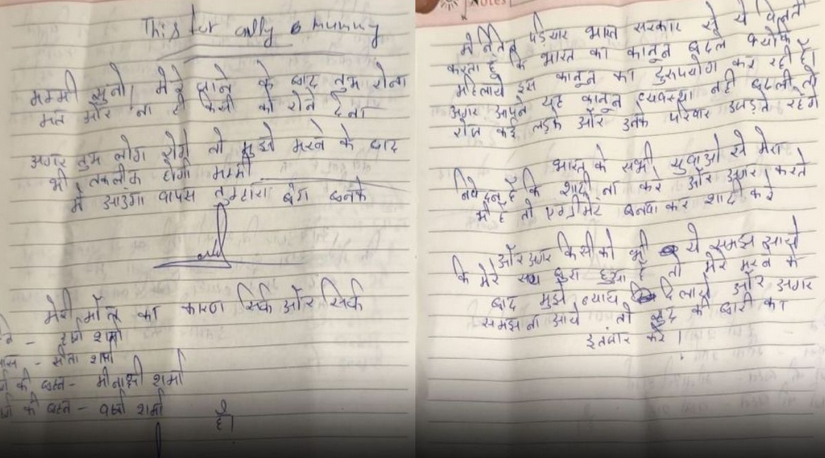 This for only mummy
मम्मी सुनो मेरे जाने के बाद तुम रोना
मत और ना ही किसी को रोने देना
अगर तुम लोग रोये तो मुझे मरने के बाद
भी तकलीफ होगी मम्मी
मैं आउगा वापस तुम्हारा बनके
मेरी मौत का कारण सिर्फ और सिर्फ
शर्मा
सीता शर्मा
की बहन - मीनाक्षी शर्मा
की बहन - वर्षा शर्मा
है।
Notes
मैं नितिन पड़ियार भारत सरकार से ये
करता हूँ कि भारत का कानून बदले क्योंकि
महिलाये इस कानून का दुरुपयोग कर रही है।
अगर आपने यह कानून व्यवस्था नही बदली तो
रोज कई लड़के और उनके परिवार उजड़ते रहेंगे
भारत के सभी युवाओ से मेरा
निवेदन है कि शादी ना करे और अगर करते
भी है तो एग्रीमेंट बनवा कर शादी करे
और अगर किसी को भी ये समझ आये
कि मेरे साथ बुरा हुआ है तो मेरे मरने के
बाद मुझे न्याय दिलाये और अगर
समझ ना आये तो खुद की बारी का
इंतजार करे।